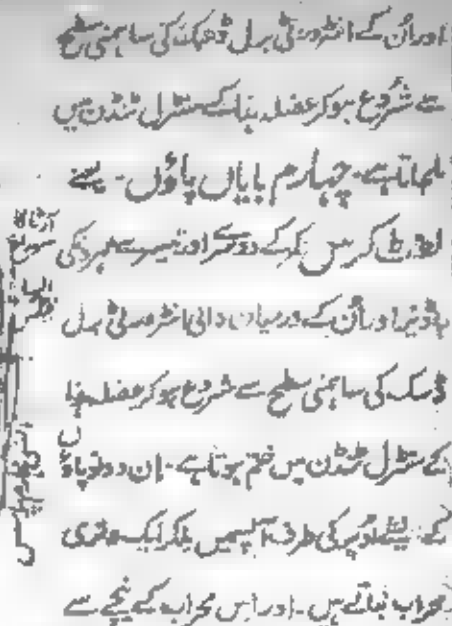 اور اُن کے انٹرورٹی برل ڈھبکن کی سامنی سطح
سے شروع ہوکر عضلہ ہذا کے سنٹرل ٹنڈن میں
ملجاتا ہے۔ چہارم بایاں پاؤں۔ یہ
کرس کے دوسرے اور تیسرے مہرہ کی
باڈیز اور اُن کے درمیان والی انٹرورٹی برل
ڈسک کی سامنی سطح سے شروع ہوکر عضلہ ہذا
کے سنٹرل ٹنڈن میں ختم ہوتا ہے۔ اِن دونو پاؤں
کے اوپر کی طرف آپسمیں ملکر ایک
محراب بناتے ہیں۔ اور اس محراب کے نیچے سے